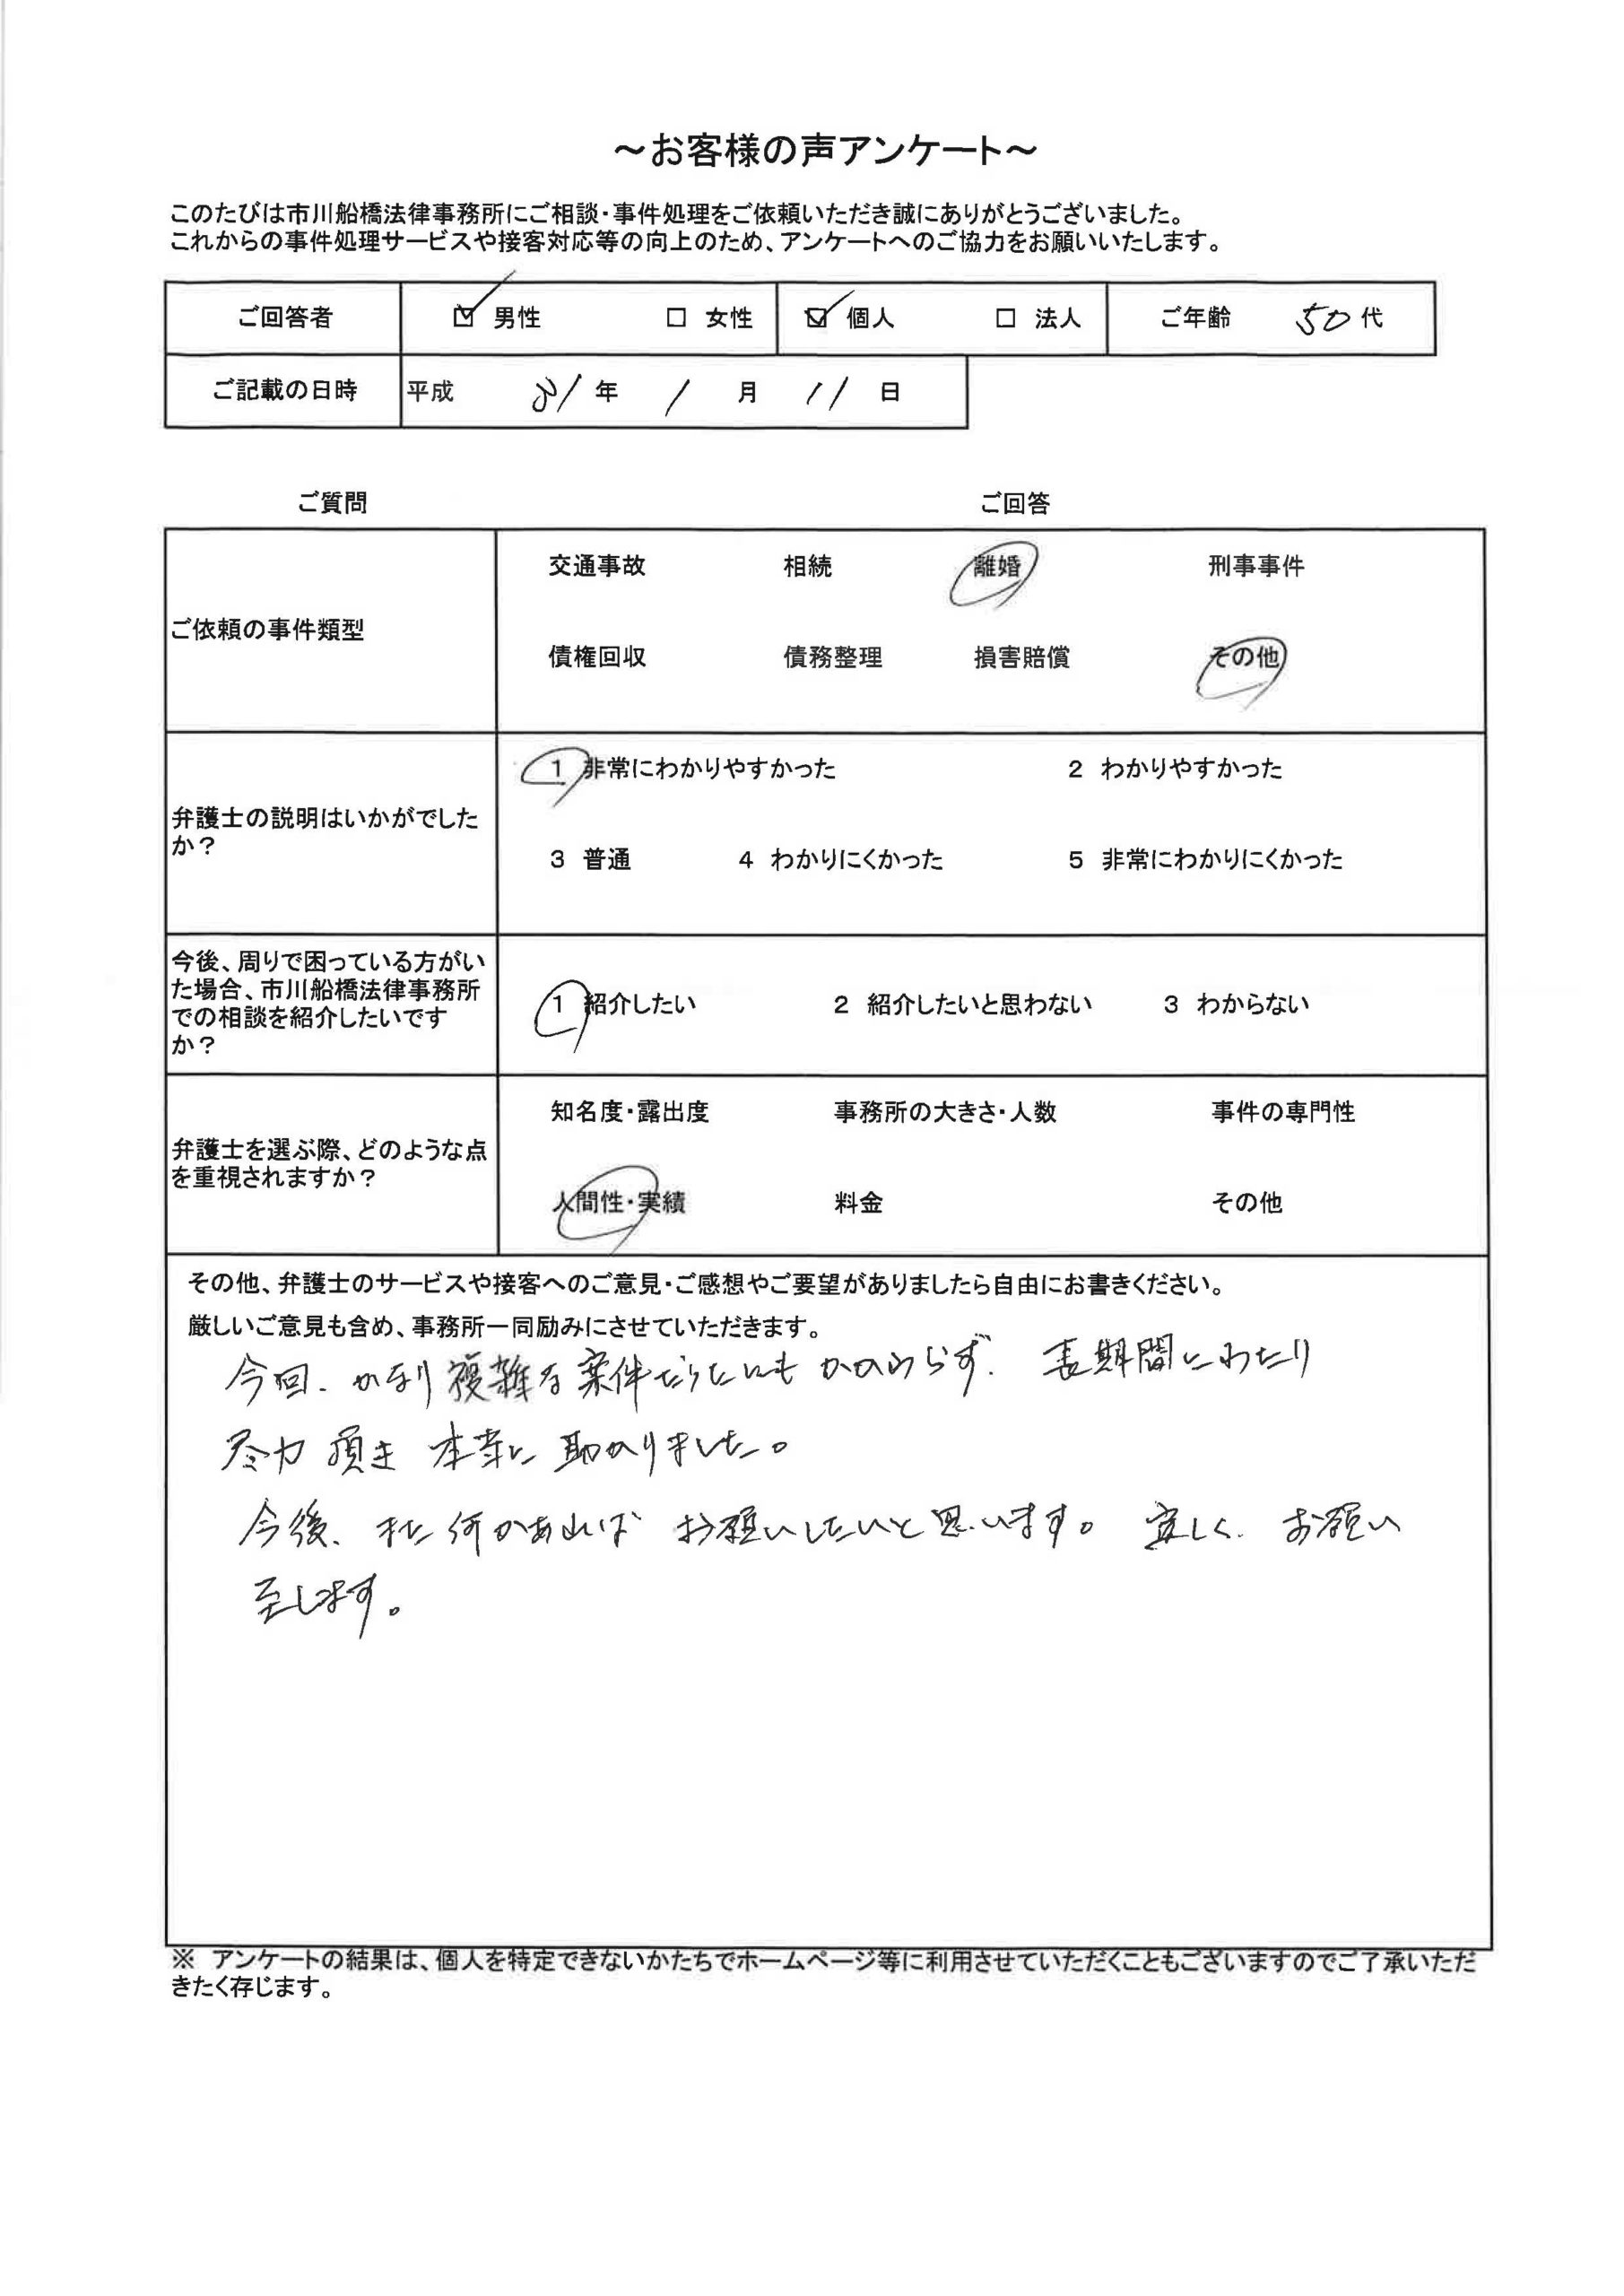 ～お客様の声アンケート～
このたびは市川船橋法律事務所にご相談・事件処理をご依頼いただき誠にありがとうございました。
これからの事件処理サービスや接客対応等の向上のため、アンケートへのご協力をお願いいたします。
ご回答者 ☑ 男性 □ 女性 ☑ 個人 □ 法人 ご年齢 50代
ご記載の日時 平成 31年 1月 11日
ご質問 ご回答
ご依頼の事件類型
交通事故 相続 離婚 刑事事件
債権回収 債務整理 損害賠償 その他
弁護士の説明はいかがでした
か？
1 非常にわかりやすかった 2 わかりやすかった
3 普通 4 わかりにくかった 5 非常にわかりにくかった
今後、周りで困っている方がい
た場合、市川船橋法律事務所
での相談を紹介したいです
か？
1 紹介したい 2 紹介したいと思わない 3 わからない
弁護士を選ぶ際、どのような点
を重視されますか？
知名度・露出度 事務所の大きさ・人数 事件の専門性
人間性・実績 料金 その他
その他、弁護士のサービスや接客へのご意見・ご感想やご要望がありましたら自由にお書きください。
厳しいご意見も含め、事務所一同励みにさせていただきます。
今回、かなり複雑な案件だったにもかかわらず、長期間にわたり
尽力頂き 本当に 助かりました。
今後、また何かあれば お願いしたいと思います。 宜しく、お願い
至します。
※ アンケートの結果は、個人を特定できないかたちでホームページ等に利用させていただくこともございますのでご了承いただ
きたく存じます。